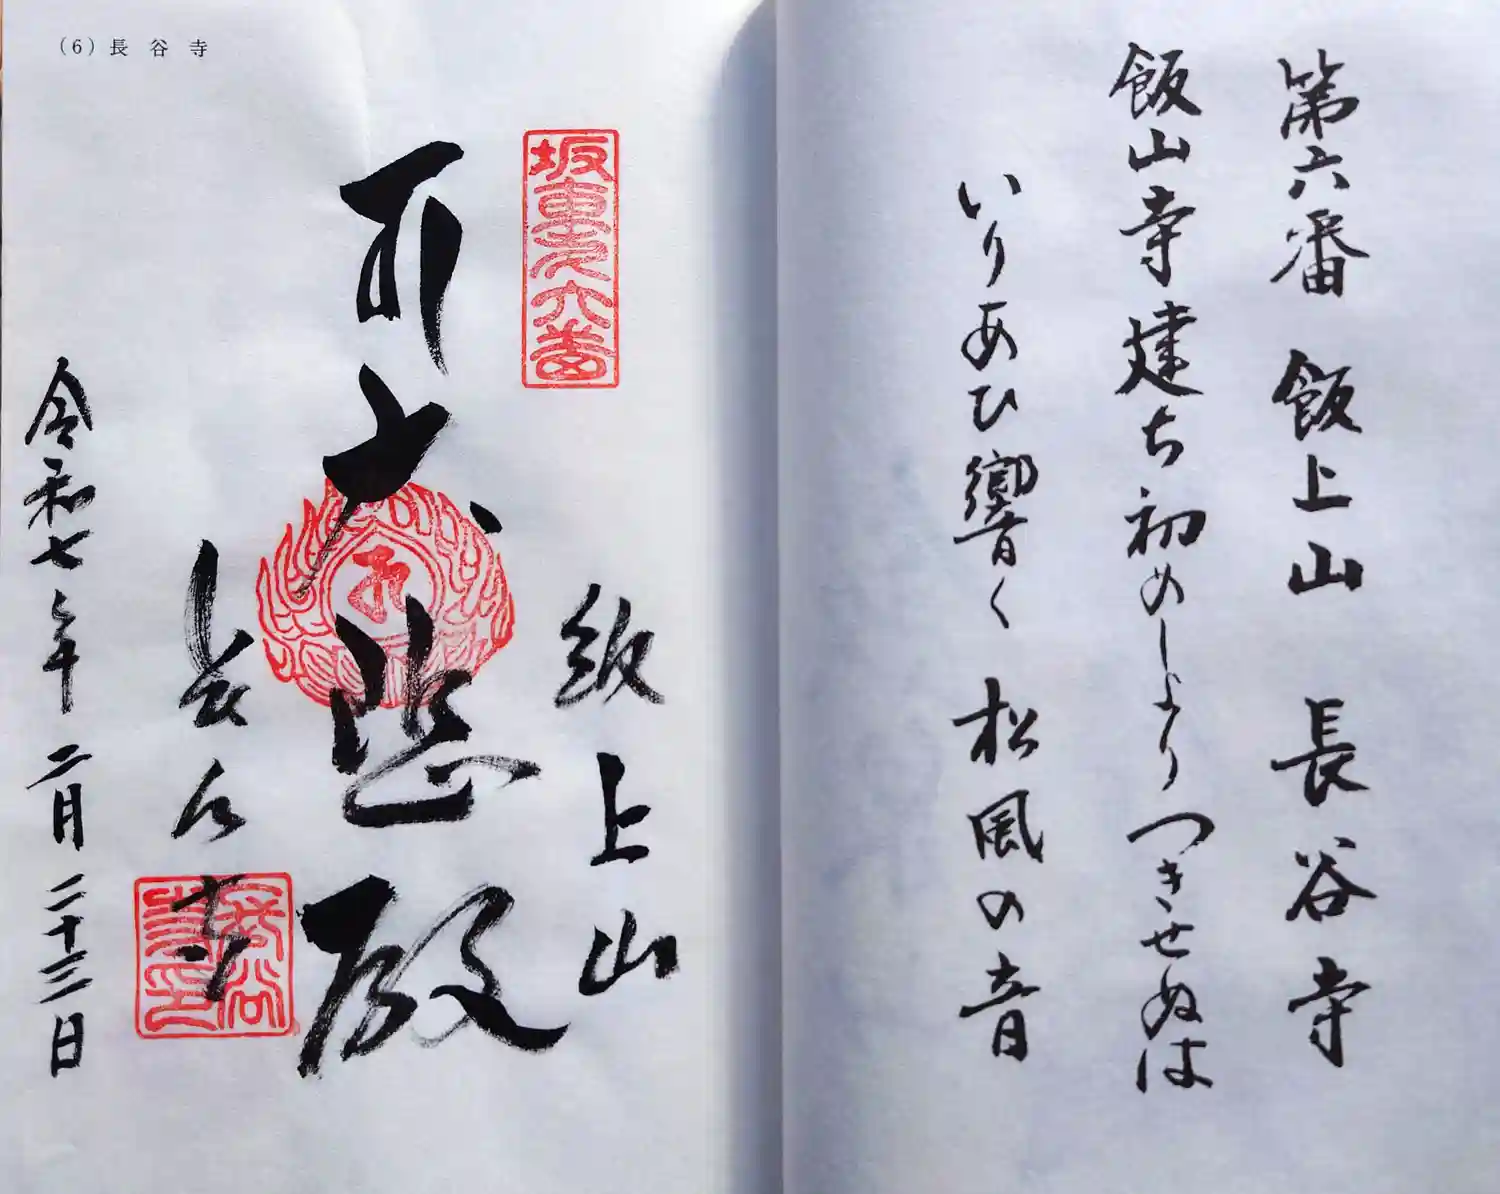 第六番 飯上山 長谷寺
飯山寺建ち初めしよりつきせぬは
いりあひ響く 松風の音
(6) 長谷寺
坂東第六番
飯上山
大悲殿
長谷寺
令和七年二月二十三日